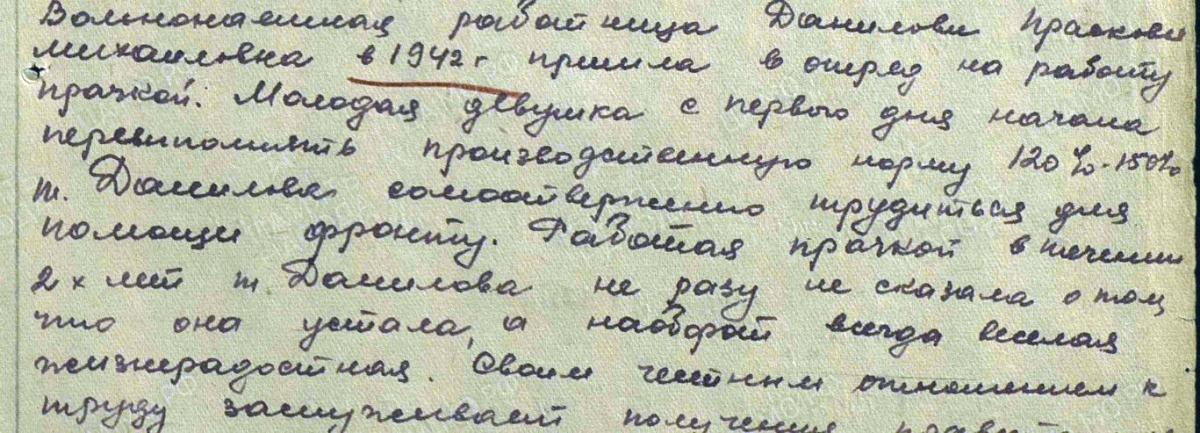 Вольнонаемная работница Данилови Прасковья
Михаиловна в 1942 г пришла в опред на работу
прачкой. Молодая девушка с первого дня начала
перевыполнять производственную норму 120%-150%
т. Данилова самоотверженно трудиться для
помощи фронту. Работая прачкой в течении
2х лет т. Данилова не разу не сказала о том,
что она устала, а наоборот всегда веселая
жизнерадостная. Своим честным отношением к
труду заслуживает получения